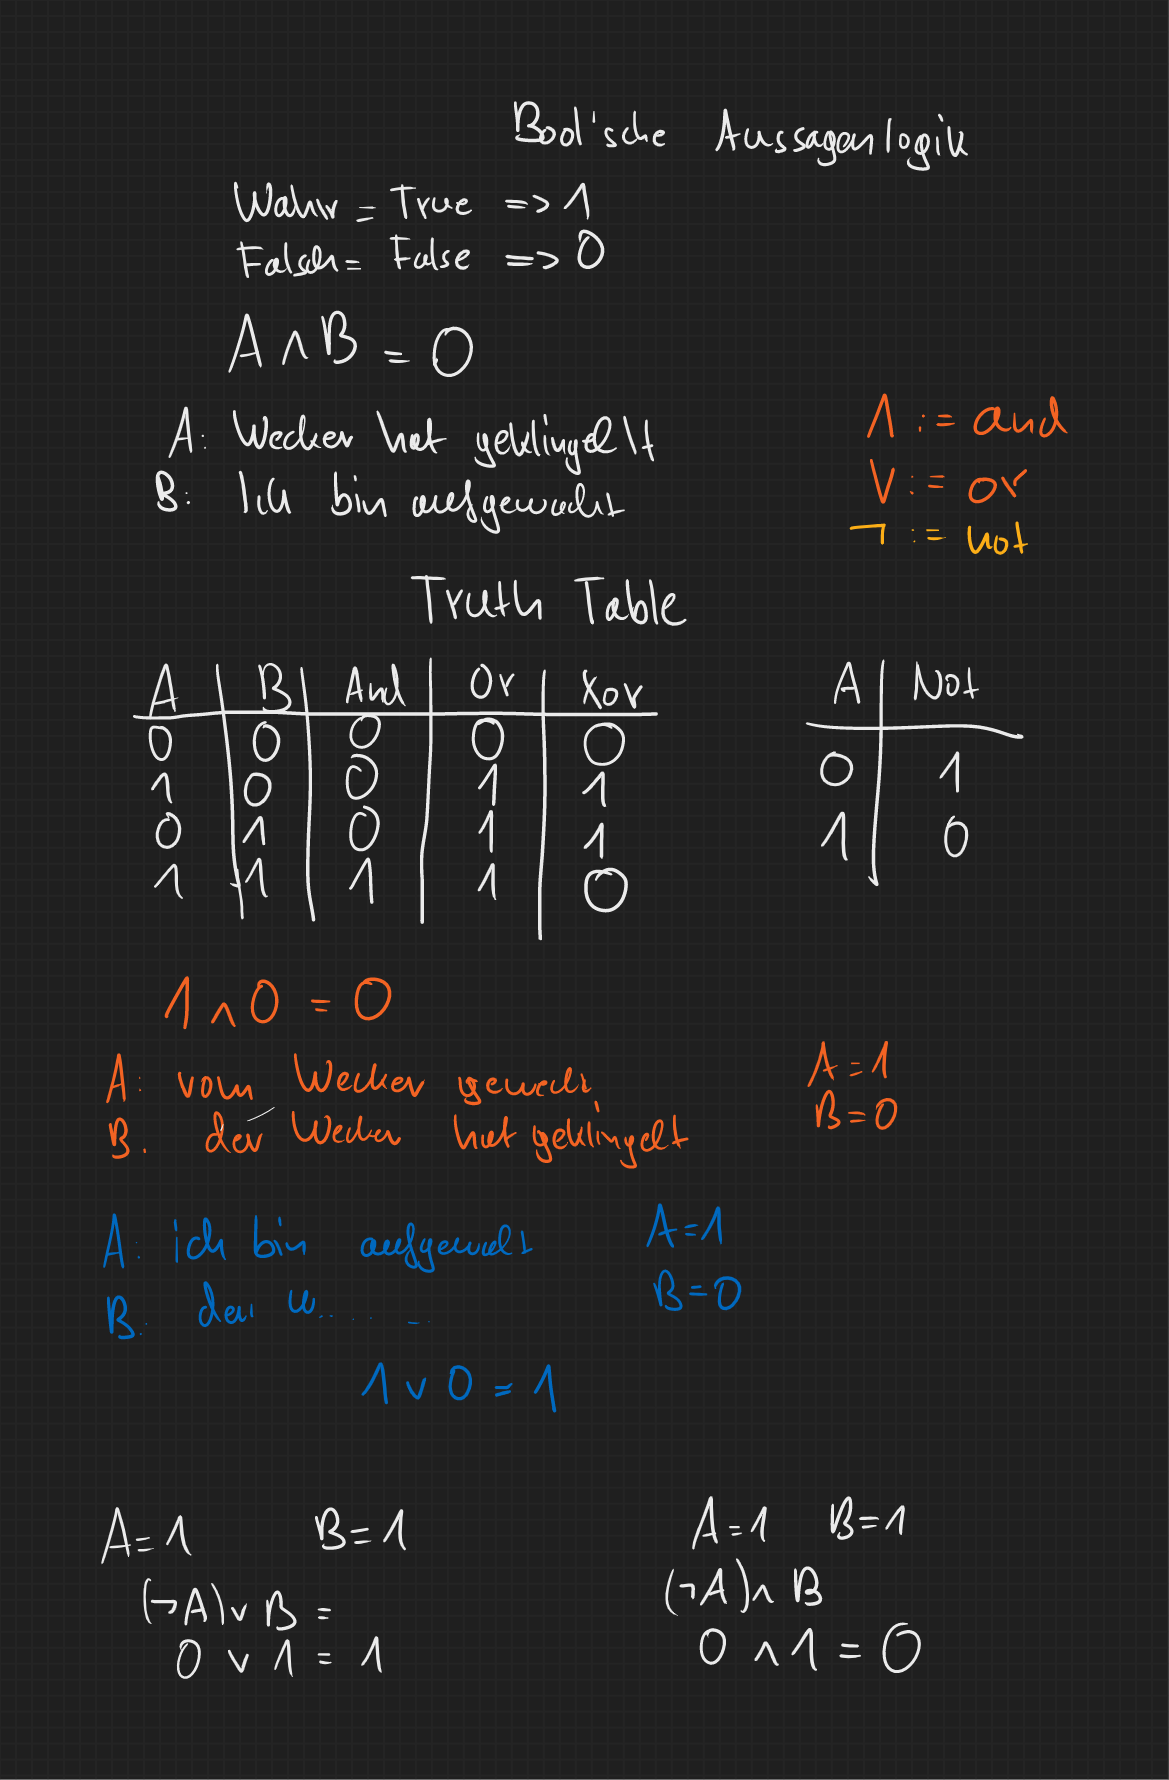 Bool'sche Aussagenlogik
Wahr = True => 1
Falsch = False => 0
A ∧ B = 0
A: Wecker hat geklingelt
B: Ich bin aufgewacht
∧ := and
∨ := or
¬ := not
Truth Table
A B And Or Xor
0 0 0 0 0
1 0 0 1 1
0 1 0 1 1
1 1 1 1 0
A Not
0 1
1 0
1 ∧ 0 = 0
A: vom Wecker geweckt
B. der Wecker hat geklingelt
A = 1
B = 0
A: ich bin aufgewacht
B: der W.. . . . _
A = 1
B = 0
1 ∨ 0 = 1
A = 1 B = 1
(¬A) ∨ B =
0 ∨ 1 = 1
A = 1 B = 1
(¬A) ∧ B
0 ∧ 1 = 0